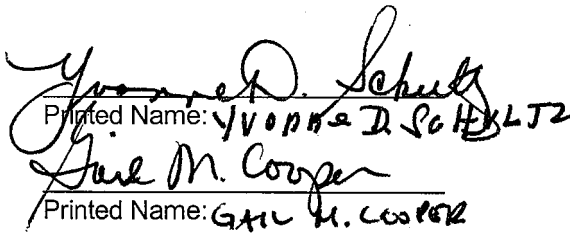 Yvonne D. Schultz
Printed Name: YVONNE D. SCHULTZ
Gail M. Cooper
Printed Name: GAIL M. COOPER